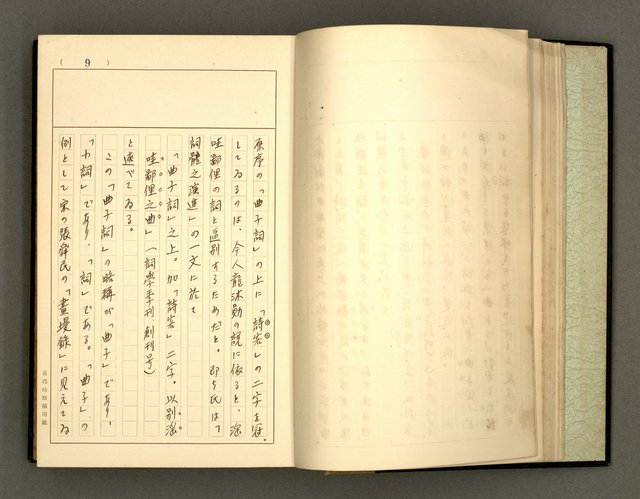 ( 9 )
原序の「曲子詞」の上に「詩客」の二字を冠
してゐるのは、今人龍沐勛の説に依ると、淫
哇鄙俚の詞と區別するためだと。即ち氏は「
詞體之演進」の一文に於て
「曲子詞」之上。加「詩客」二字。以別淫
哇鄙俚之曲」(詞學季刊創刊号)
と述べてゐる。
この「曲子詞」の略稱が「曲子」であり、
「小詞」であり、「詞」である。「曲子」の
例として宋の張舜民の「畫墁錄」に見えてゐ
黃得時原稿用紙